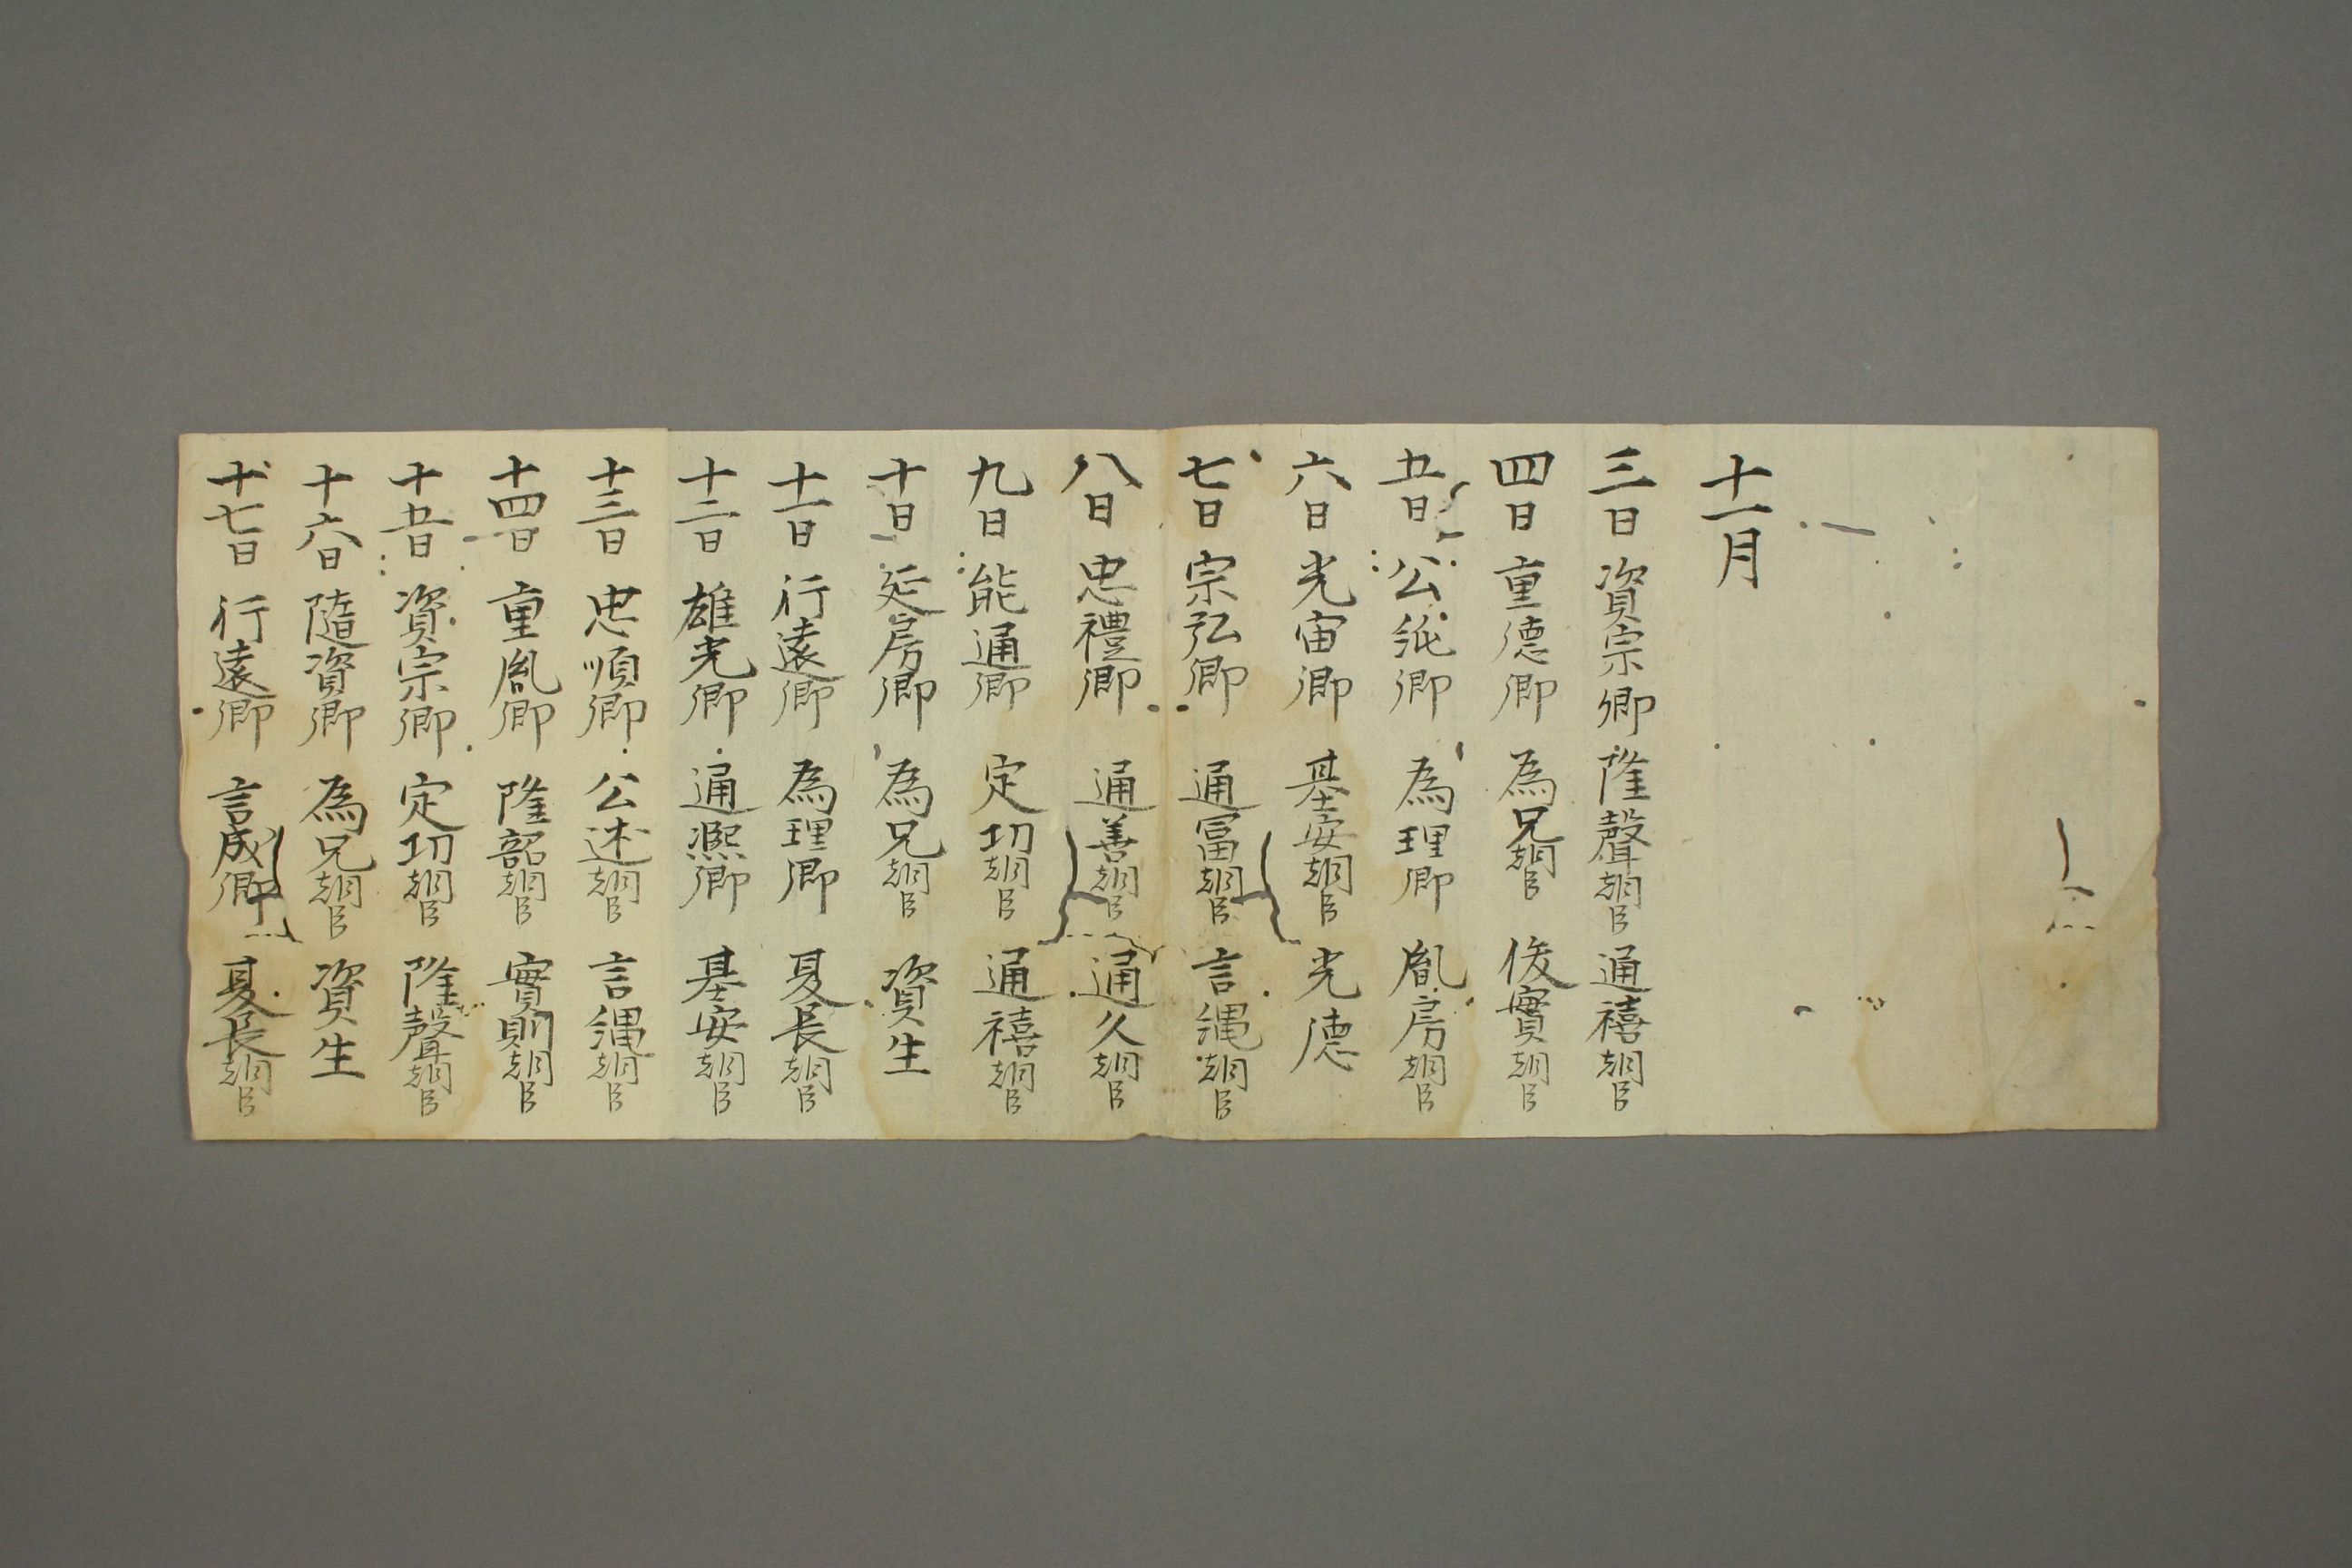 十一月
三日 資宗卿 隆聲朝臣 通禧朝臣
四日 重德卿 為兄朝臣 俊實朝臣
五日 公純卿 為理卿 胤房朝臣
六日 光宙卿 基安朝臣 光德
七日 宗弘卿 通冨朝臣 言縄朝臣
八日 忠禮卿 通善朝臣 通久朝臣
九日 能通卿 定功朝臣 通禧朝臣
十日 延房卿 為兄朝臣 資生
十一日 行遠卿 為理卿 夏長朝臣
十二日 雄光卿 通凞卿 基安朝臣
十三日 忠順卿 公述朝臣 言縄朝臣
十四日 重胤卿 隆韶朝臣 實則朝臣
十五日 資宗卿 定功朝臣 隆聲朝臣
十六日 隨資卿 為兄朝臣 資生
十七日 行遠卿 言成卿 夏長朝臣